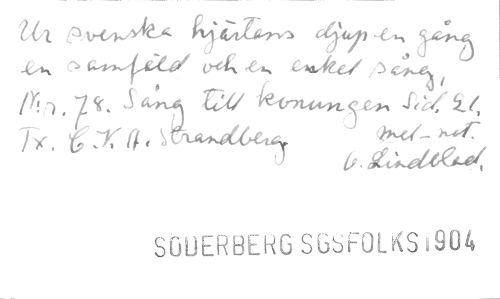 Ur svenska hjärtans djup en gång
en samfäld och en enkel sång,
N:r. 78. Sång till konungen Sid. 21.
Tx. C. V. A. Strandberg. mel-not.
O. Lindblad.
SÖDERBERG SGSFOLKS 1904